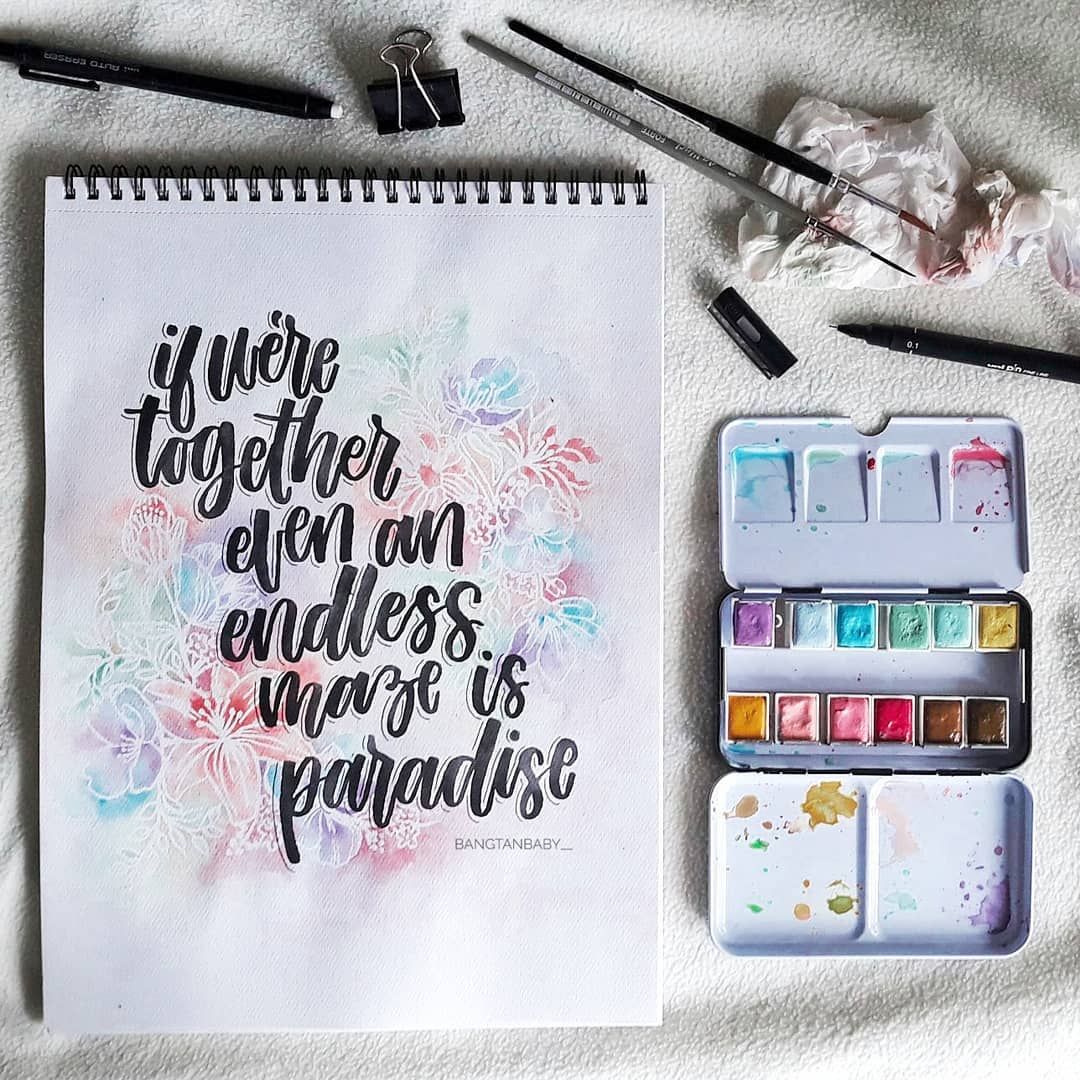 uni AUTO ERASER
FORTE
0.1
uni pin FINE LINE
if we're
together
even an
endless
maze is
paradise
BANGTANBABY__